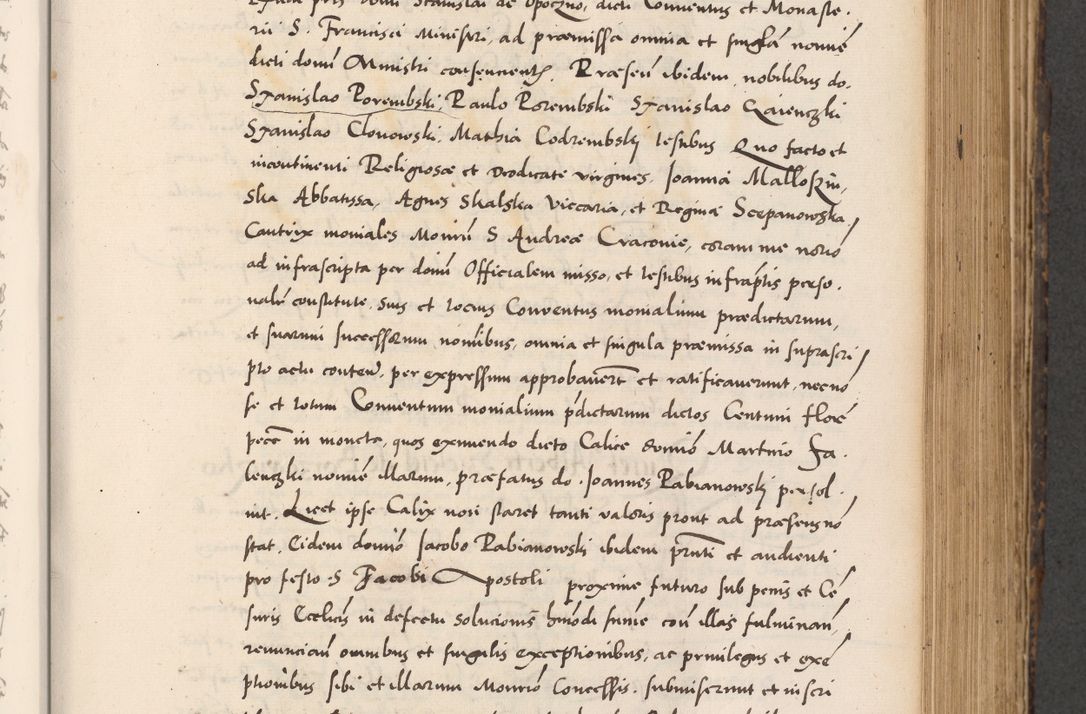 rii S. Francisci Ministri, ad præmissa omnia et singla nomīe
dicti domī Ministri consencientꝭ. Præsen ibidem, nobilibus do.
Stanislao Porembski, Paulo Porembski Stanislao Czienczki
Stanislao Clouowski, Mathia Codrembskj testibus Quo facto et
incontinenti Religiosæ et Deodicate virgines, Joanna Malloszin,
ska Abbatissa, Agnes Skalska Viccaria, et Regina Scepanowska
Cantrix moniales Monrii S Andreæ Cracouie, coram me norio
ad infrascripta per domi Officialem misso, et testibus infraptis perso.
naler constitute, suis et tocius Conuentus monialium prædictarum,
et suarum successorum nomibus, omnia et singula præmissa in suprascri
pto actu conten, per expressum approbauert et ratificauerunt, necno
se et totum Conuentum monialium pdictarum dictos Centum flore
pece in moncta, quos eximendo dicto Calice domio Martino Fa.
lenczki nomie illarum, præfatus do. Joannes Pabianowskj persol.
uit. Licet ipse Calix non staret tanti valoris prout ad præsens no
stat. Eidem domio Jacobo Pabianowski ibidem prnti et audienti
pro festo S Jacobi Apostoli proxime futuro sub penis et Ce
suris Ecclicis in defectu solucionis hmodi sume con illas fulminan,
renuncian omnibus et singulis exceptionibus, ac priuilegiis et exe
ptionibus sibi et illarum Monrio Concessis. submiserunt et inscri